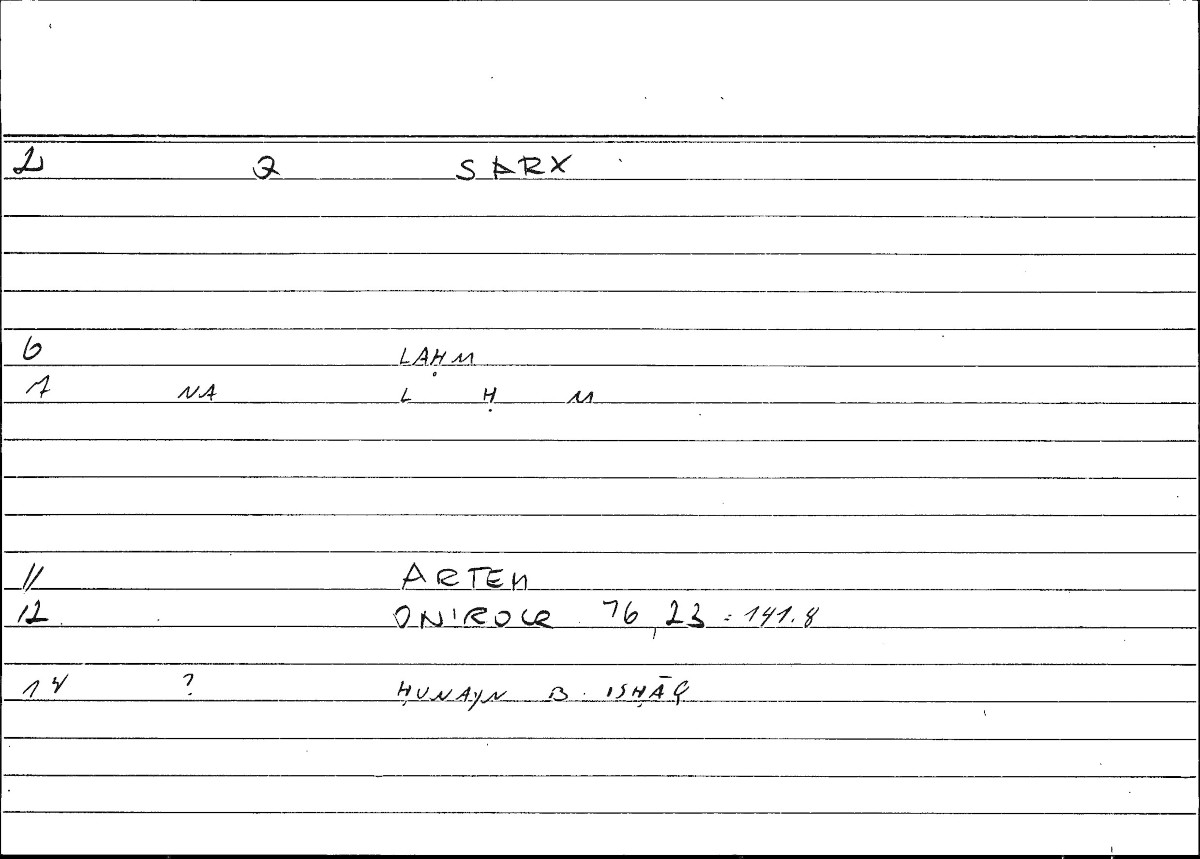 2 Q SARX
6 LAḤM
7 NA L Ḥ M
11 ARTEM
12 ONIROCR 76,23 = 141.8
14 ? ḤUNAYN B. ISḤĀQ